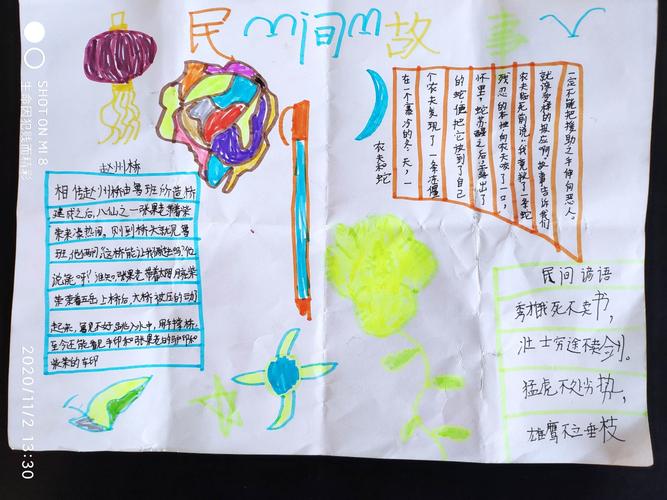 民间故事
赵州桥
相传赵州桥由鲁班所造,桥
建成之后,八仙之一张果老带着柴
荣来凑热闹,刚到桥头就见鲁
班,他俩问"这桥能让我俩过吗?"他
说能呀!谁知张果老带着太阳月亮,柴
荣带着五岳上桥后,大桥被压的动
起来,鲁见不好跳入水中,用手撑桥,
至今还能看见手印和张果老的驴印和
柴荣的车印
农夫和蛇
在一个寒冷的冬天,一
个农夫发现了一条冻僵
的蛇便把它放到了自己
怀里,蛇苏醒之后露出了
残忍的本性向农夫咬了一口,
农夫临死前说:我竟救了一条蛇
就该 样的报应啊!故事告诉我们
一定不能把援助之手伸向恶人。
民间谚语
秀才饿死不卖书,
壮士穷途不卖剑。
猛虎不处劣势,
雄鹰不立垂枝
SHOT ON MI 8
2020/11/2 13:30